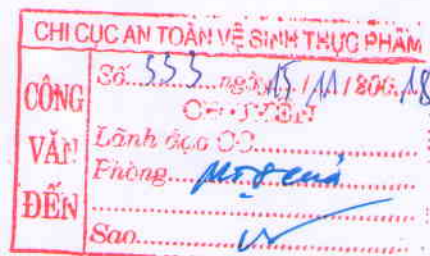 CHI CỤC AN TOÀN VỆ SINH THỰC PHẨM
CÔNG VĂN ĐẾN
Số 555 ngày 15/11/200 18
Lãnh đạo CC
Phòng
Sao